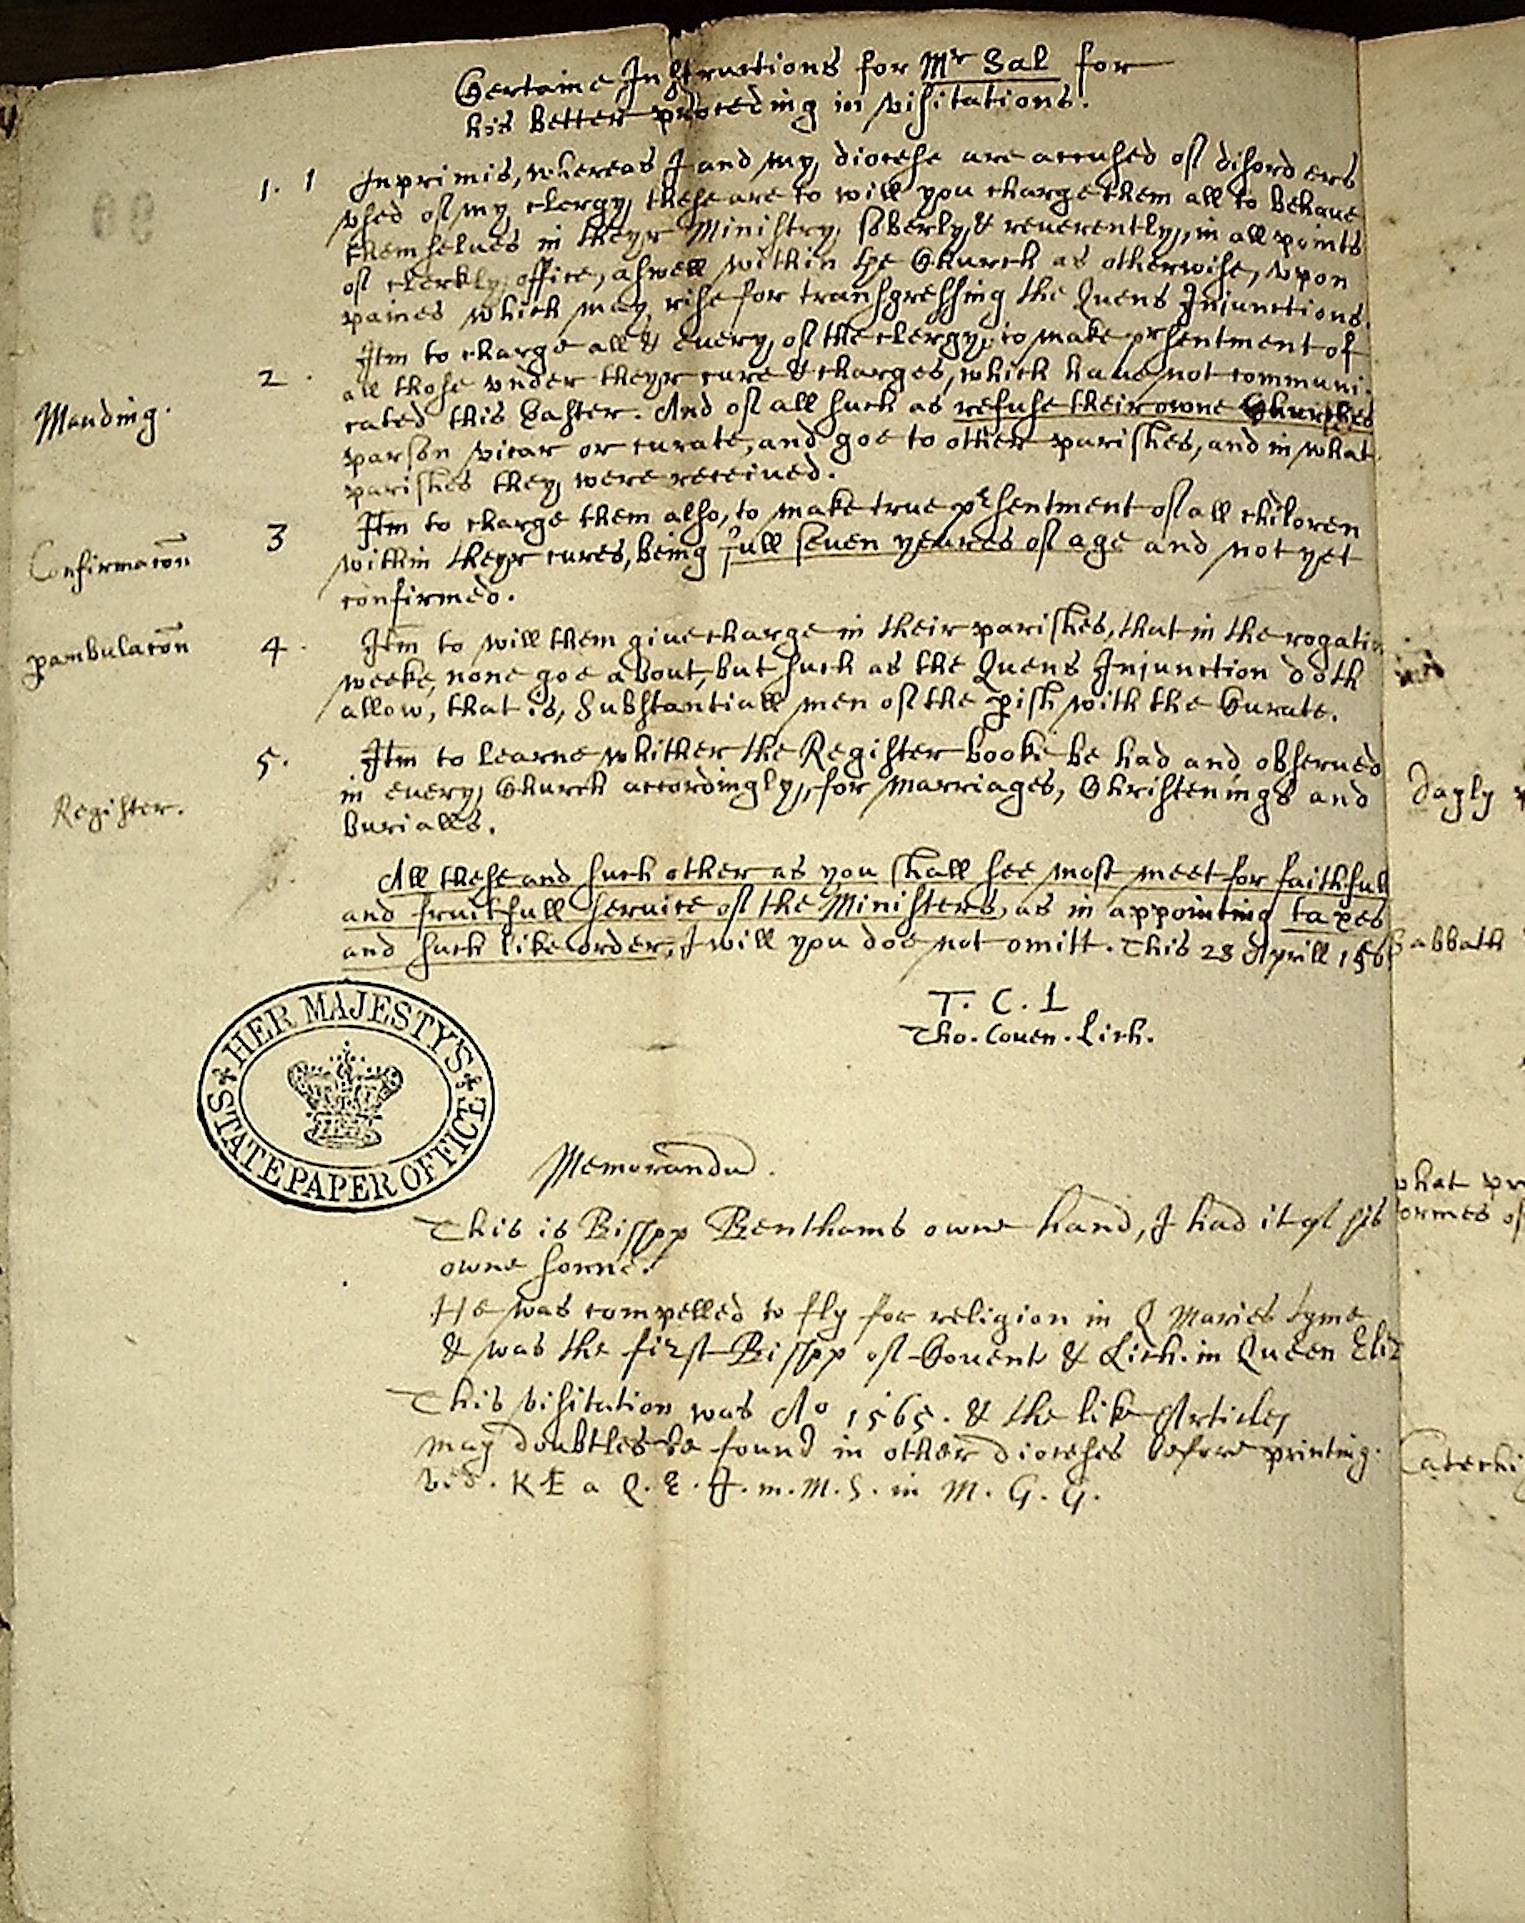 Certaine Instructions for Mr Sal for
his better proceding in visitations.
1. 1 Inprimis, whereas I and my diocese are accused of disorders
vsed of my clergy, these are to will you charge them all to behaue
themselues in theyr Ministry, soberly & reuerently, in all points
of clerkly office, aswell within the Church as otherwise, vpon
paines which may rise for transgressing the Quens Injunctions.
2. Itm to charge all & euery of the clergy, to make presentment of
all those vnder theyr cure & charges, which haue not communi-
Manding.
cated this Easter. And of all such as refuse their owne Churches
parson vicar or curate, and goe to other parishes, and in what
parishes they were receiued.
3 Itm to charge them also, to make true presentment of all children
Confirmacon
within theyr cures, being full seuen yeares of age and not yet
confirmed.
pambulacon
4. Itm to will them giue charge in their parishes, that in the rogatio
weeke, none goe about, but such as the Quens Injunction doth
allow, that is, substantiall men of the pish with the Curate.
5. Itm to learne whither the Register booke be had and obserued
Register.
in euery Church accordingly, for Marriages, Christenings and
burialls.
All these and such other as you shall see most meet for faithfull
and fruitfull seruice of the Ministers, as in appointing taxes
and such like order, I will you doe not omitt. This 28 Aprill 156
T. C. L
Tho. Couen. Lich.
HER MAJESTY'S
STATE PAPER OFFICE
Memorandu.
This is Bishpp Benthams owne hand, I had it of his
owne sonne.
He was compelled to fly for religion in Q Maries tyme
& was the first Bishpp of Couent & Lich. in Queen Eliz
This visitation was Ao 1565. & the like Articles
may doubtles be found in other dioceses before printing.
M. S. in M. G. G.
Dayly
Sabbath
what pr
ormes of
Catechi